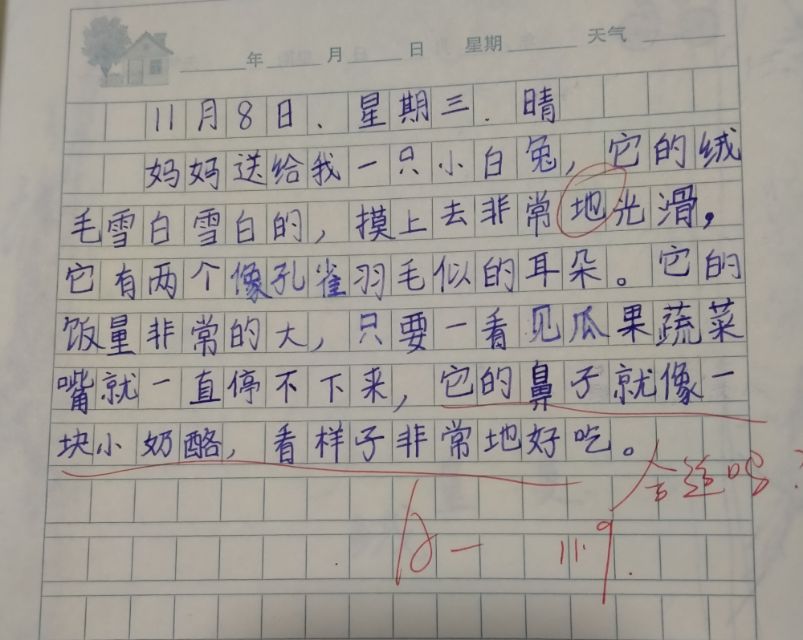 年 月 日 星期 天气
11月8日．星期三．晴
妈妈送给我一只小白兔，它的绒
毛雪白雪白的，摸上去非常地光滑，
它有两个像孔雀羽毛似的耳朵。它的
饭量非常的大，只要一看见瓜果蔬菜
嘴就一直停不下来，它的鼻子就像一
块小奶酪，看样子非常地好吃。
合适吗？
11.9.